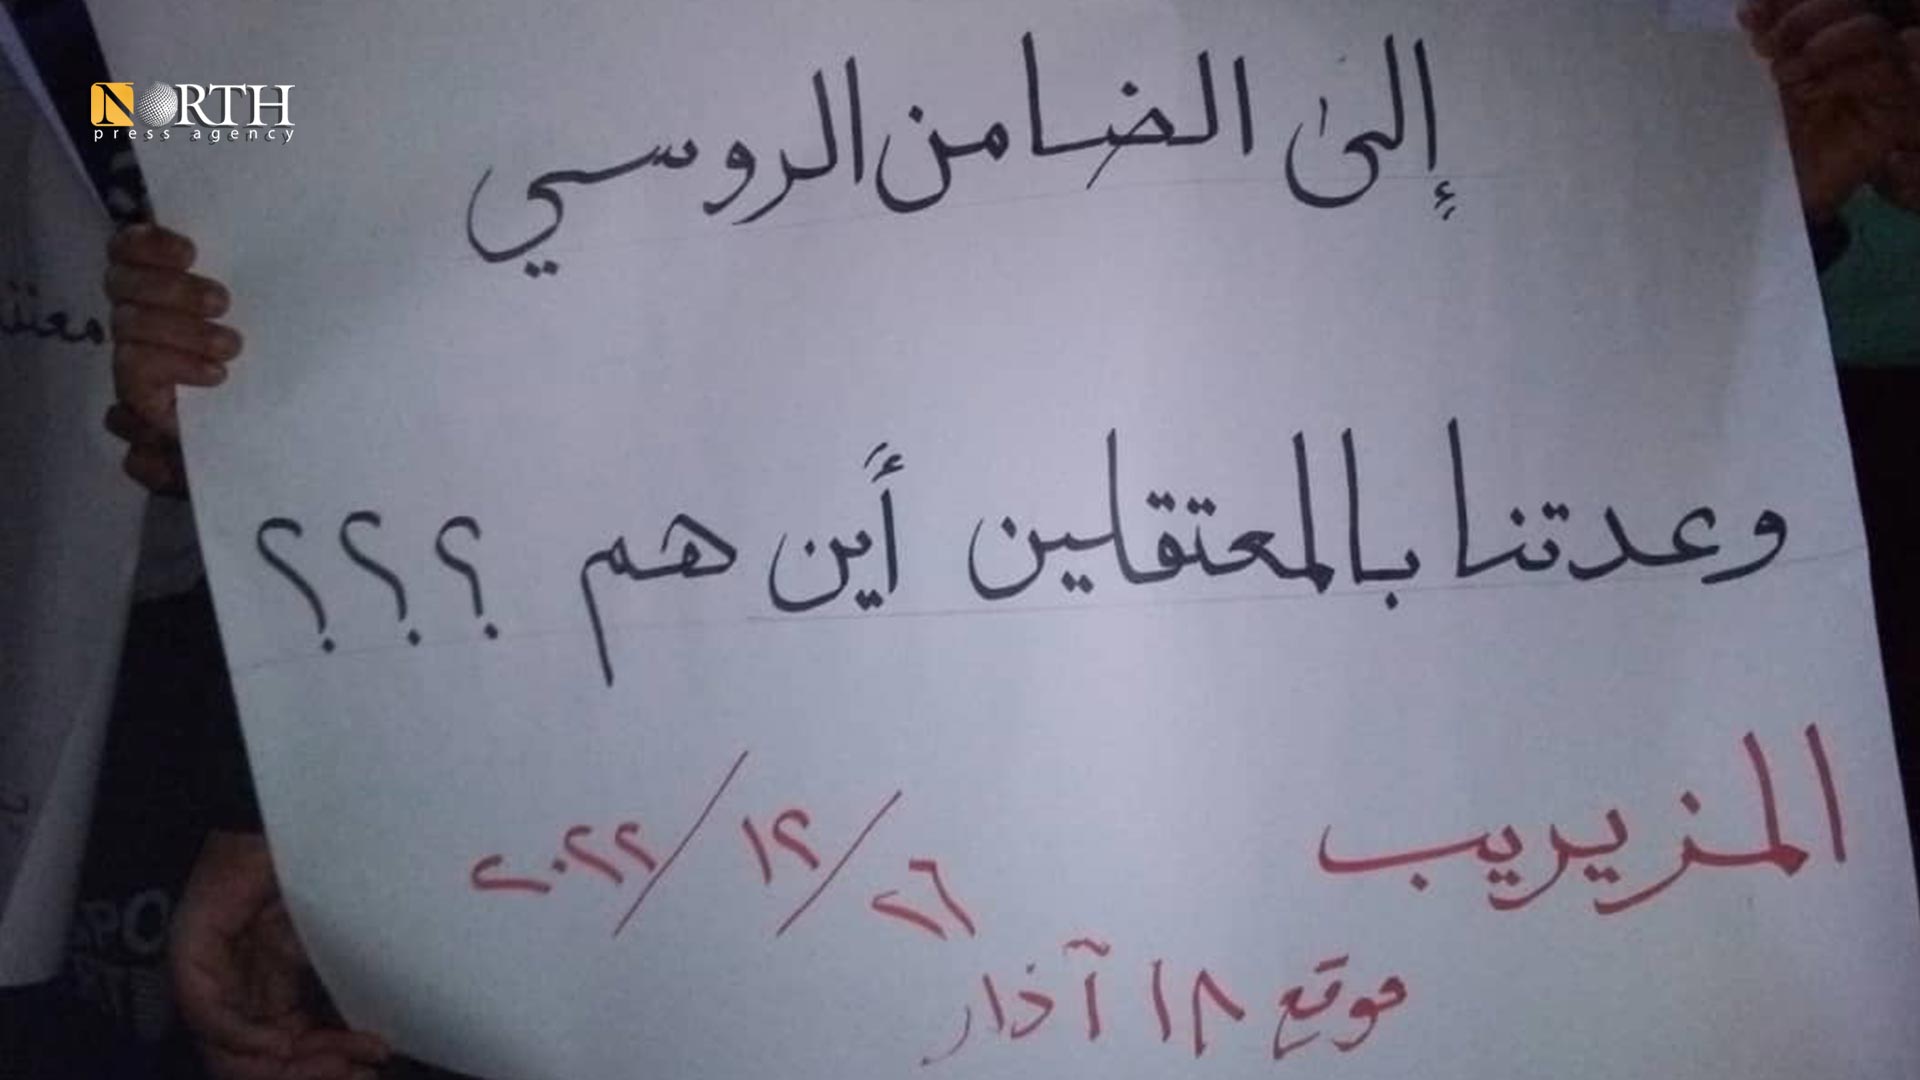 NORTH
press agency
إلى الضامن الروسي
وعدتنا بالمعتقلين أين هم ؟؟؟
المزيريب ٢٦/١٢/٢٠٢٢
موقع ١٨ آذار